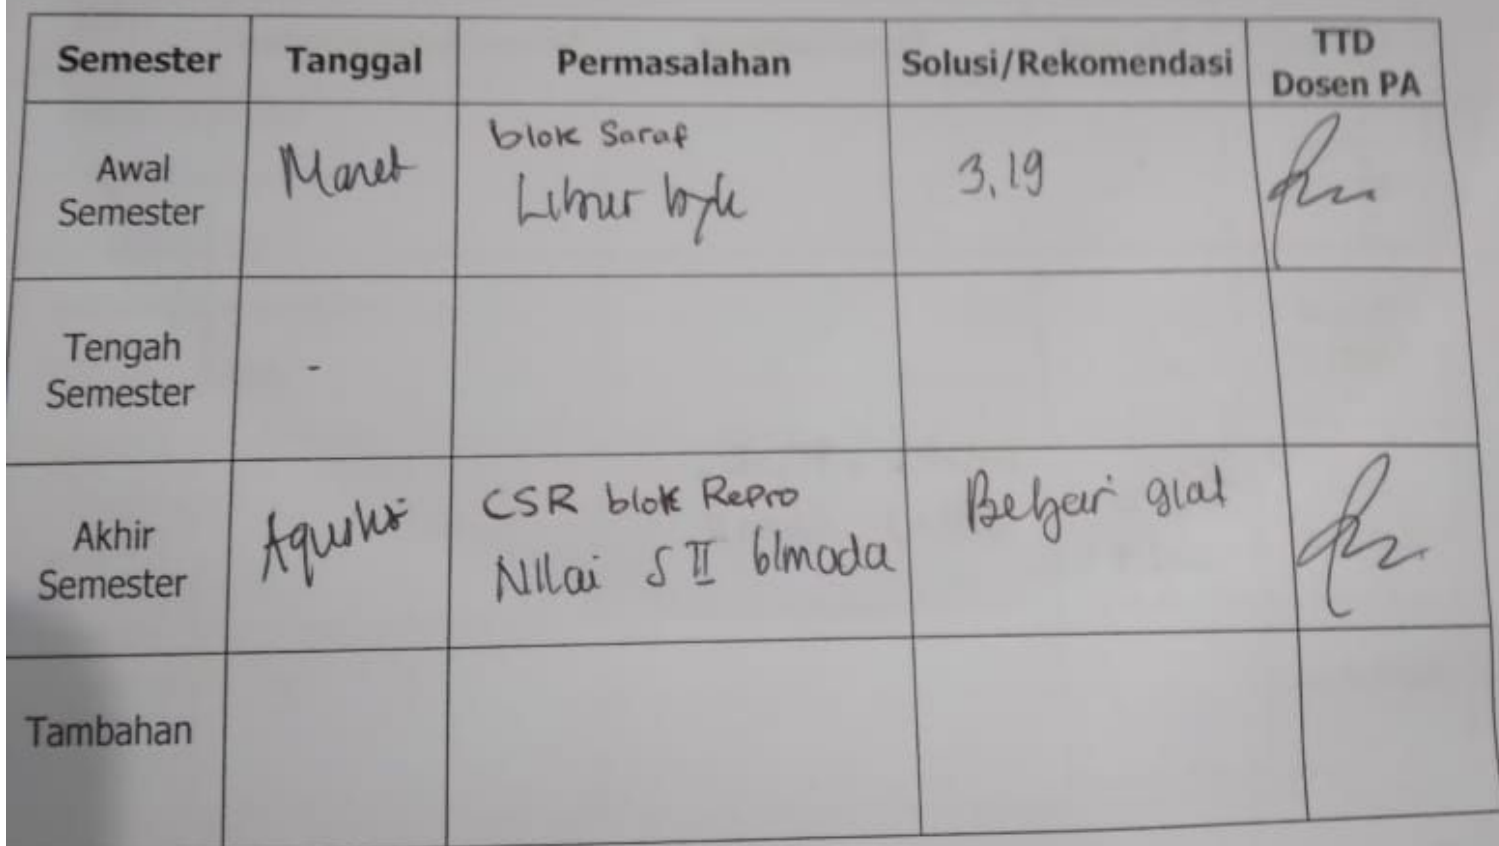 Semester Tanggal Permasalahan Solusi/Rekomendasi TTD
Dosen PA
Awal
Semester
Maret
blok Saraf
Libur byk
3,19
Tengah
Semester
-
Akhir
Semester
Agustus
CSR blok Repro
Nilai S II blm ada
Belajar giat
Tambahan